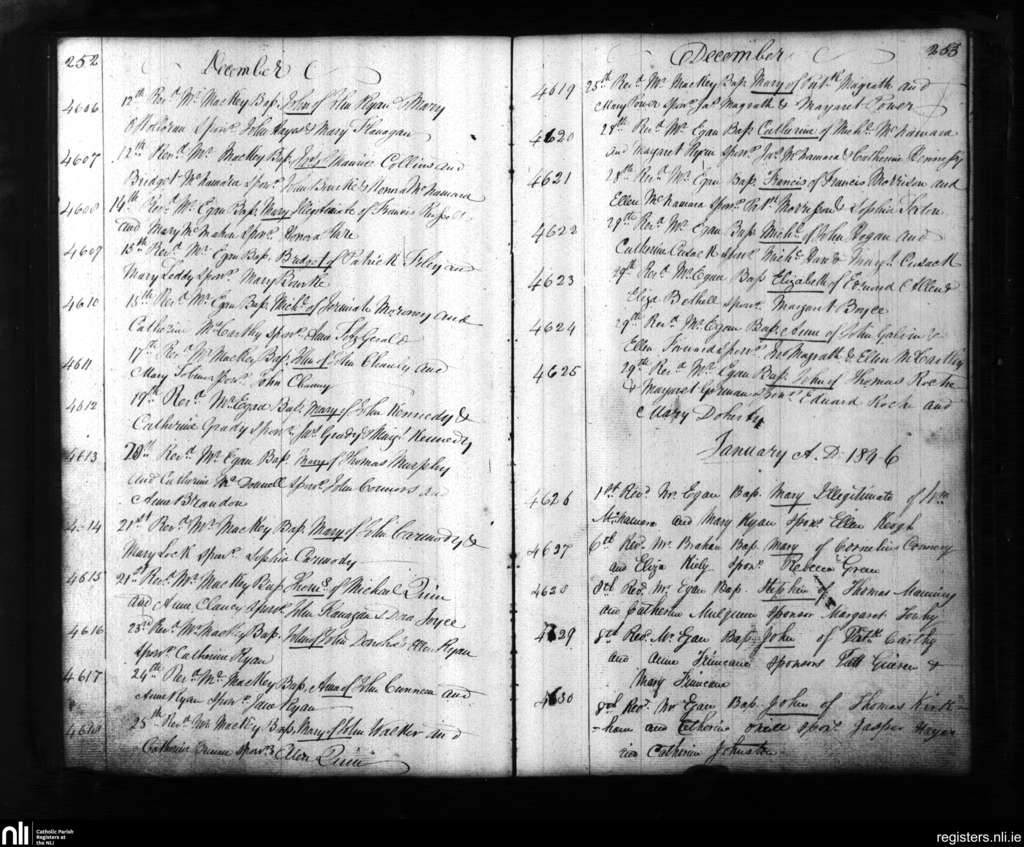 252
December
4606 12th Revd Mr Mackey Bap. John of John Ryan & Mary
O'Holloran Sponr John Hayes & Mary Flanagan
4607 12th Revd Mr Mackey Bap. of Maurice Collins and
Bridget McNamara Sponr John Burke & Honora McNamara
4608 14th Revd Mr Egan Bap. Mary Illegitimate of Francis
and Mary McMahon Sponr Honora
4609 15th Revd Mr Egan Bap. Bridget of Patrick Foley and
Mary Leddy Sponr Mary Burke
4610 15th Revd Mr Egan Bap. Michl of Jeremiah Moroney and
Catherine McCarthy Sponr Anne Fitzgerald
4611 17th Revd Mr Mackey Bap. John of John Cleary and
Mary Tobin Sponr John
4612 19th Revd Mr Egan Bap. Mary of John Kennedy &
Catherine Grady Sponr Jas Grady & Margt Kennedy
4613 20th Revd Mr Egan Bap. Mary of Thomas Murphy
and Catherine McDonnell Sponr John Connors and
Anne Brandon
4614 21st Revd Mr Mackey Bap. Mary of John Carmody &
Mary Lock Sponr Sophia Carmody
4615 21st Revd Mr Mackey Bap. Thomas of Michael Quin
and Anne Clancy Sponr John Flanagan & Joyce
4616 23rd Revd Mr Mackey Bap. John of John & Ellen Ryan
Sponr Catherine Ryan
4617 24th Revd Mr Mackey Bap. Anne of John Cunneen and
Anne Ryan Sponr Jane Ryan
4618 25th Revd Mr Mackey Bap. Mary of John Walker and
Catherine Sponr Ellen Quin
December 253
4619 25th Revd Mr Mackey Bap. Mary of Patk Magrath and
Mary Power Sponr Jas Magrath & Margaret Power
4620 28th Revd Mr Egan Bap. Catherine of Michl McNamara
and Margaret Ryan Sponr Jas McNamara & Catherine Hennessy
4621 28th Revd Mr Egan Bap. Francis of Francis Morrison and
Ellen McNamara Sponr Morrison & Sophia Sexton
4622 29th Revd Mr Egan Bap. Michl of John Hogan and
Catherine Cusack Sponr Michl & Margt Cusack
4623 29th Revd Mr Egan Bap Elizabeth of Edmund Allen &
Eliza Bethell Sponr Margaret Boyce
4624 29th Revd Mr Egan Bap. Anne of John Galvin &
Ellen Sponr Magrath & Ellen McCarthy
4625 29th Revd Mr Egan Bap. John of Thomas Roche
& Margaret Gorman Sponr Edward Roche and
Mary Doherty
January A.D. 1846
4626 1st Revd Mr Egan Bap. Mary Illegitimate of Wm
McNamara and Mary Ryan Sponr Ellen Keogh
4627 6th Revd Mr Brahan Bap. Mary of Cornelius Conroy
and Eliza Kiely Sponr Rebecca Green
4628 8th Revd Mr Egan Bap. Stephen of Thomas Manning
and Catherine Mulqueen Sponsor Margaret
4629 8th Revd Mr Egan Bap. John of Patk Carthy
and Anne Finucane Sponsors Patt &
Mary Finucane
4630 8th Revd Mr Egan Bap. John of Thomas Kirk-
-ham and Catherine Sponr Jasper
Catherine Johnston
nli Catholic Parish
Registers at
the NLI
registers.nli.ie